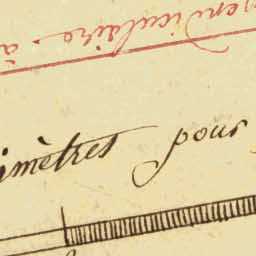 pendiculaire à
imètres pour